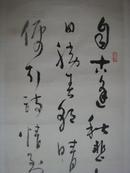 自古逢秋悲
日勝春朝晴
便引詩情到